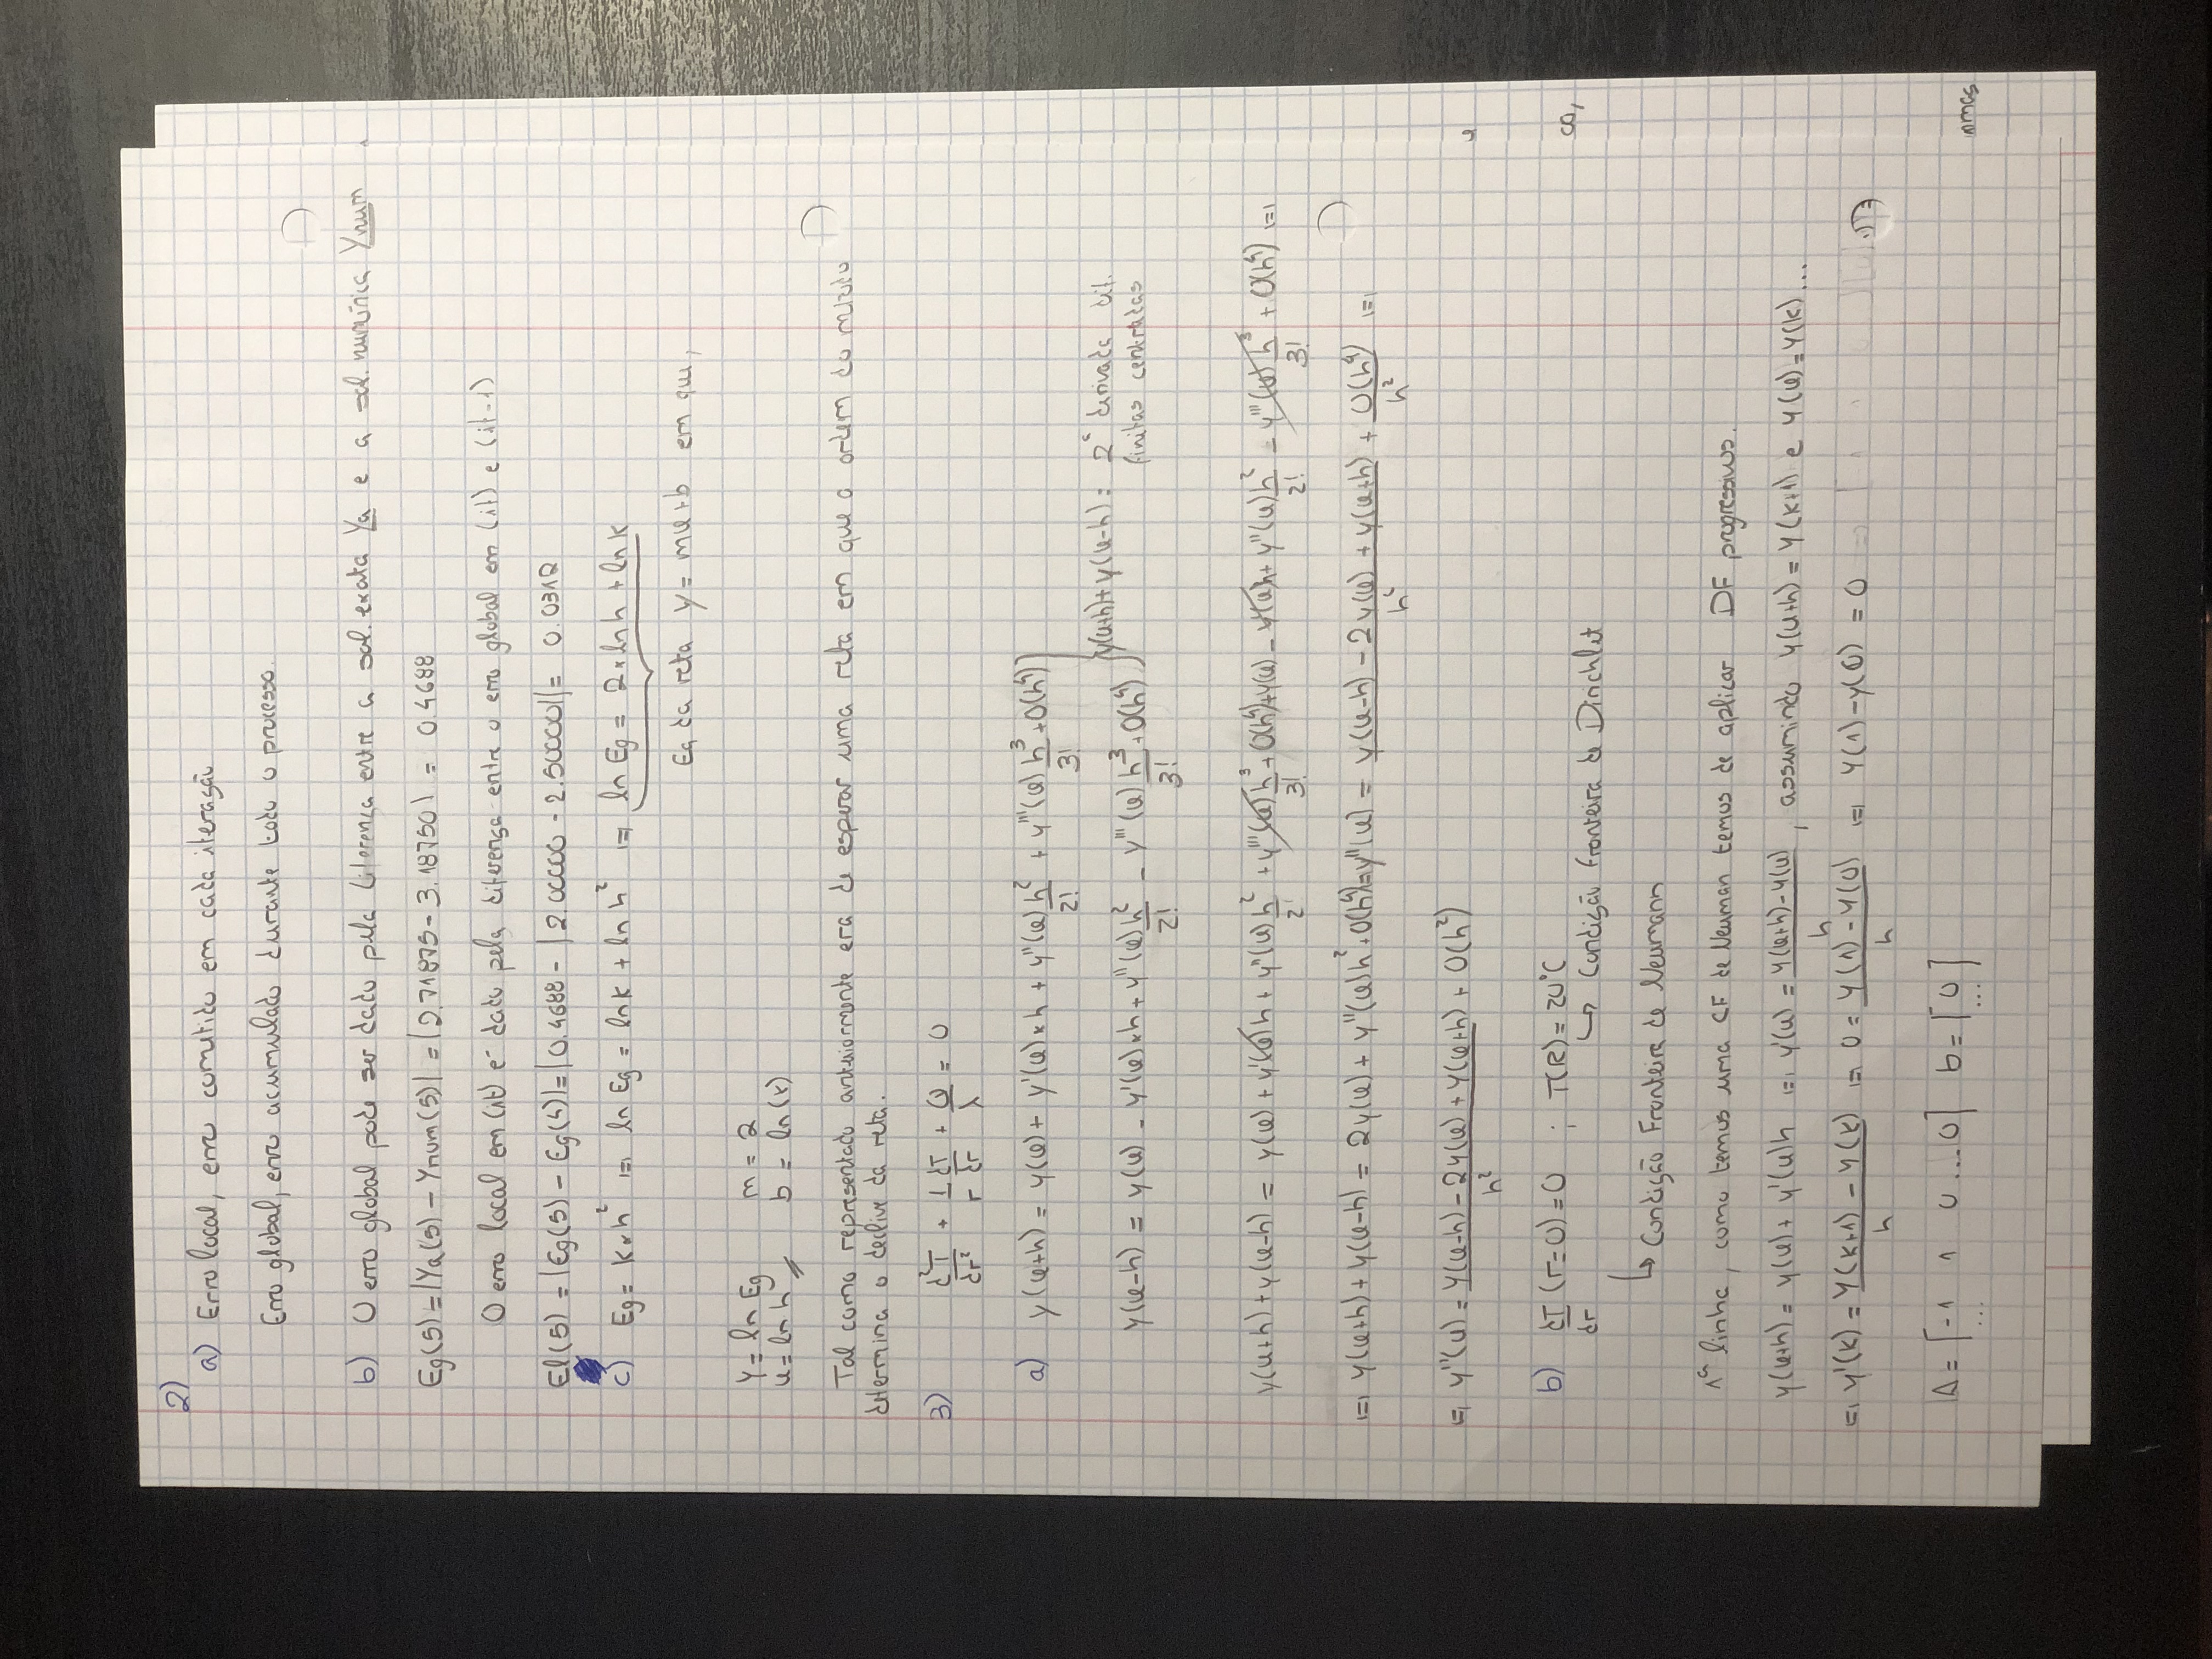 2)
a) Erro local, erro cometido em cada iteração
Erro global, erro acumulado durante todo o processo.
b) O erro global pode ser dado pela diferença entre a sol. exata Ya e a sol. numérica Ynum
Eg(5) = |Ya(5) - Ynum(5)| = |2.71875 - 3.18750| = 0.4688
O erro local em (it) é dado pela diferença entre o erro global em (it) e (it-1)
El(5) = |Eg(5) - Eg(4)| = |0.4688 - |2.00000 - 2.50000|| = 0.0312
c) Eg = K×h² (=) ln Eg = ln K + ln h² (=) ln Eg = 2×ln h + ln K
Eq da reta y = mx+b em que,
Y = ln Eg m = 2
x = ln h b = ln(K)
Tal como representado anteriormente era de esperar uma reta em que a ordem do método
determina o declive da reta.
3) d²T/dr² + 1/r dT/dr + Q/λ = 0
a) y(x+h) = y(x) + y'(x)×h + y''(x) h²/2! + y'''(x) h³/3! + O(h⁴)
y(x+h) + y(x-h) = 2ª derivada dif.
finitas centradas
y(x-h) = y(x) - y'(x)×h + y''(x) h²/2! - y'''(x) h³/3! + O(h⁴)
y(x+h) + y(x-h) = y(x) + y'(x)h + y''(x) h²/2! + y'''(x) h³/3! + O(h⁴) + y(x) - y'(x)h + y''(x) h²/2! - y'''(x) h³/3! + O(h⁴) (=)
(=) y(x+h) + y(x-h) = 2y(x) + y''(x)h² + O(h⁴) (=) y''(x) = (y(x-h) - 2y(x) + y(x+h))/h² + O(h⁴)/h² (=)
(=) y''(x) = (y(x-h) - 2y(x) + y(x+h))/h² + O(h²)
b) dT/dr (r=0) = 0 ; T(R) = 20°C
↳ Condição Fronteira de Dirichlet
↳ Condição Fronteira de Neumann
1ª linha, como temos uma CF de Neuman temos de aplicar DF progressivas.
y(x+h) = y(x) + y'(x)h (=) y'(x) = (y(x+h) - y(x))/h, assumindo y(x+h) = y(k+1) e y(x) = y(k)...
(=) y'(k) = (y(k+1) - y(k))/h (=) 0 = (y(1) - y(0))/h (=) y(1) - y(0) = 0
A = [-1 1 0 ... 0] b = [0]
... ...
co,
mas